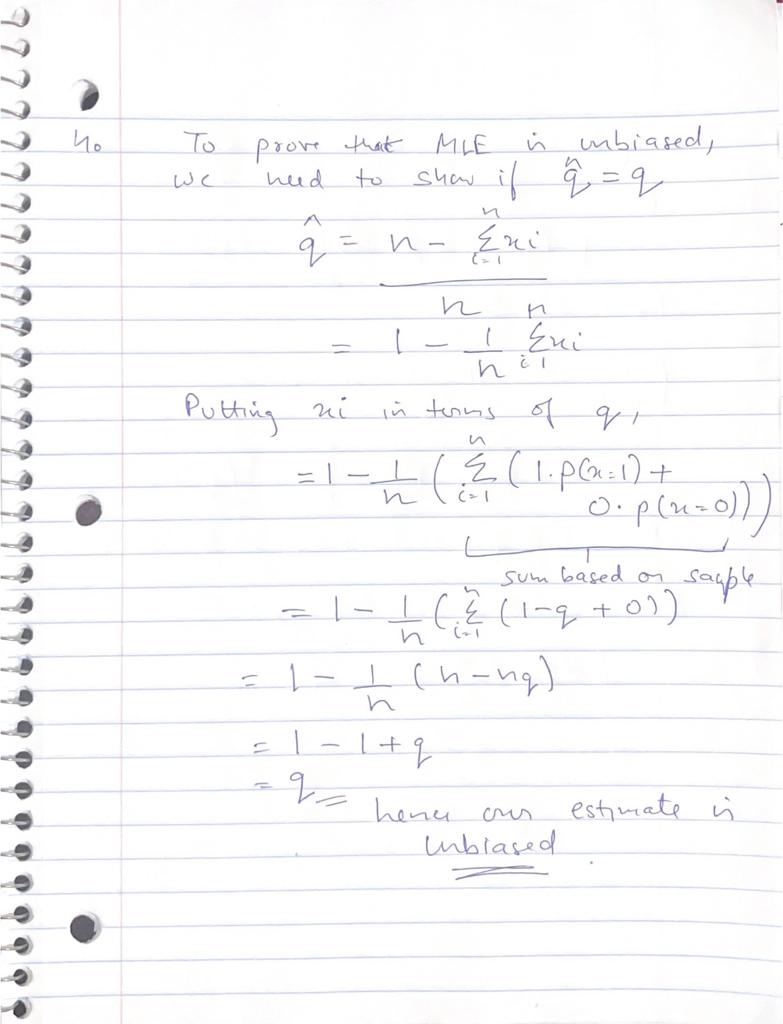 4. To prove that MLE is unbiased,
we need to show if q̂ = q
q̂ = (n - Σ_{i=1}^{n} xi) / n
= 1 - 1/n Σ_{i=1}^{n} xi
Putting xi in terms of q,
= 1 - 1/n ( Σ_{i=1}^{n} ( 1·p(x=1) +
0·p(x=0) ) )
sum based on sample
= 1 - 1/n ( Σ_{i=1}^{n} (1-q + 0) )
= 1 - 1/n (n - nq)
= 1 - 1 + q
= q
hence our estimate is
unbiased.